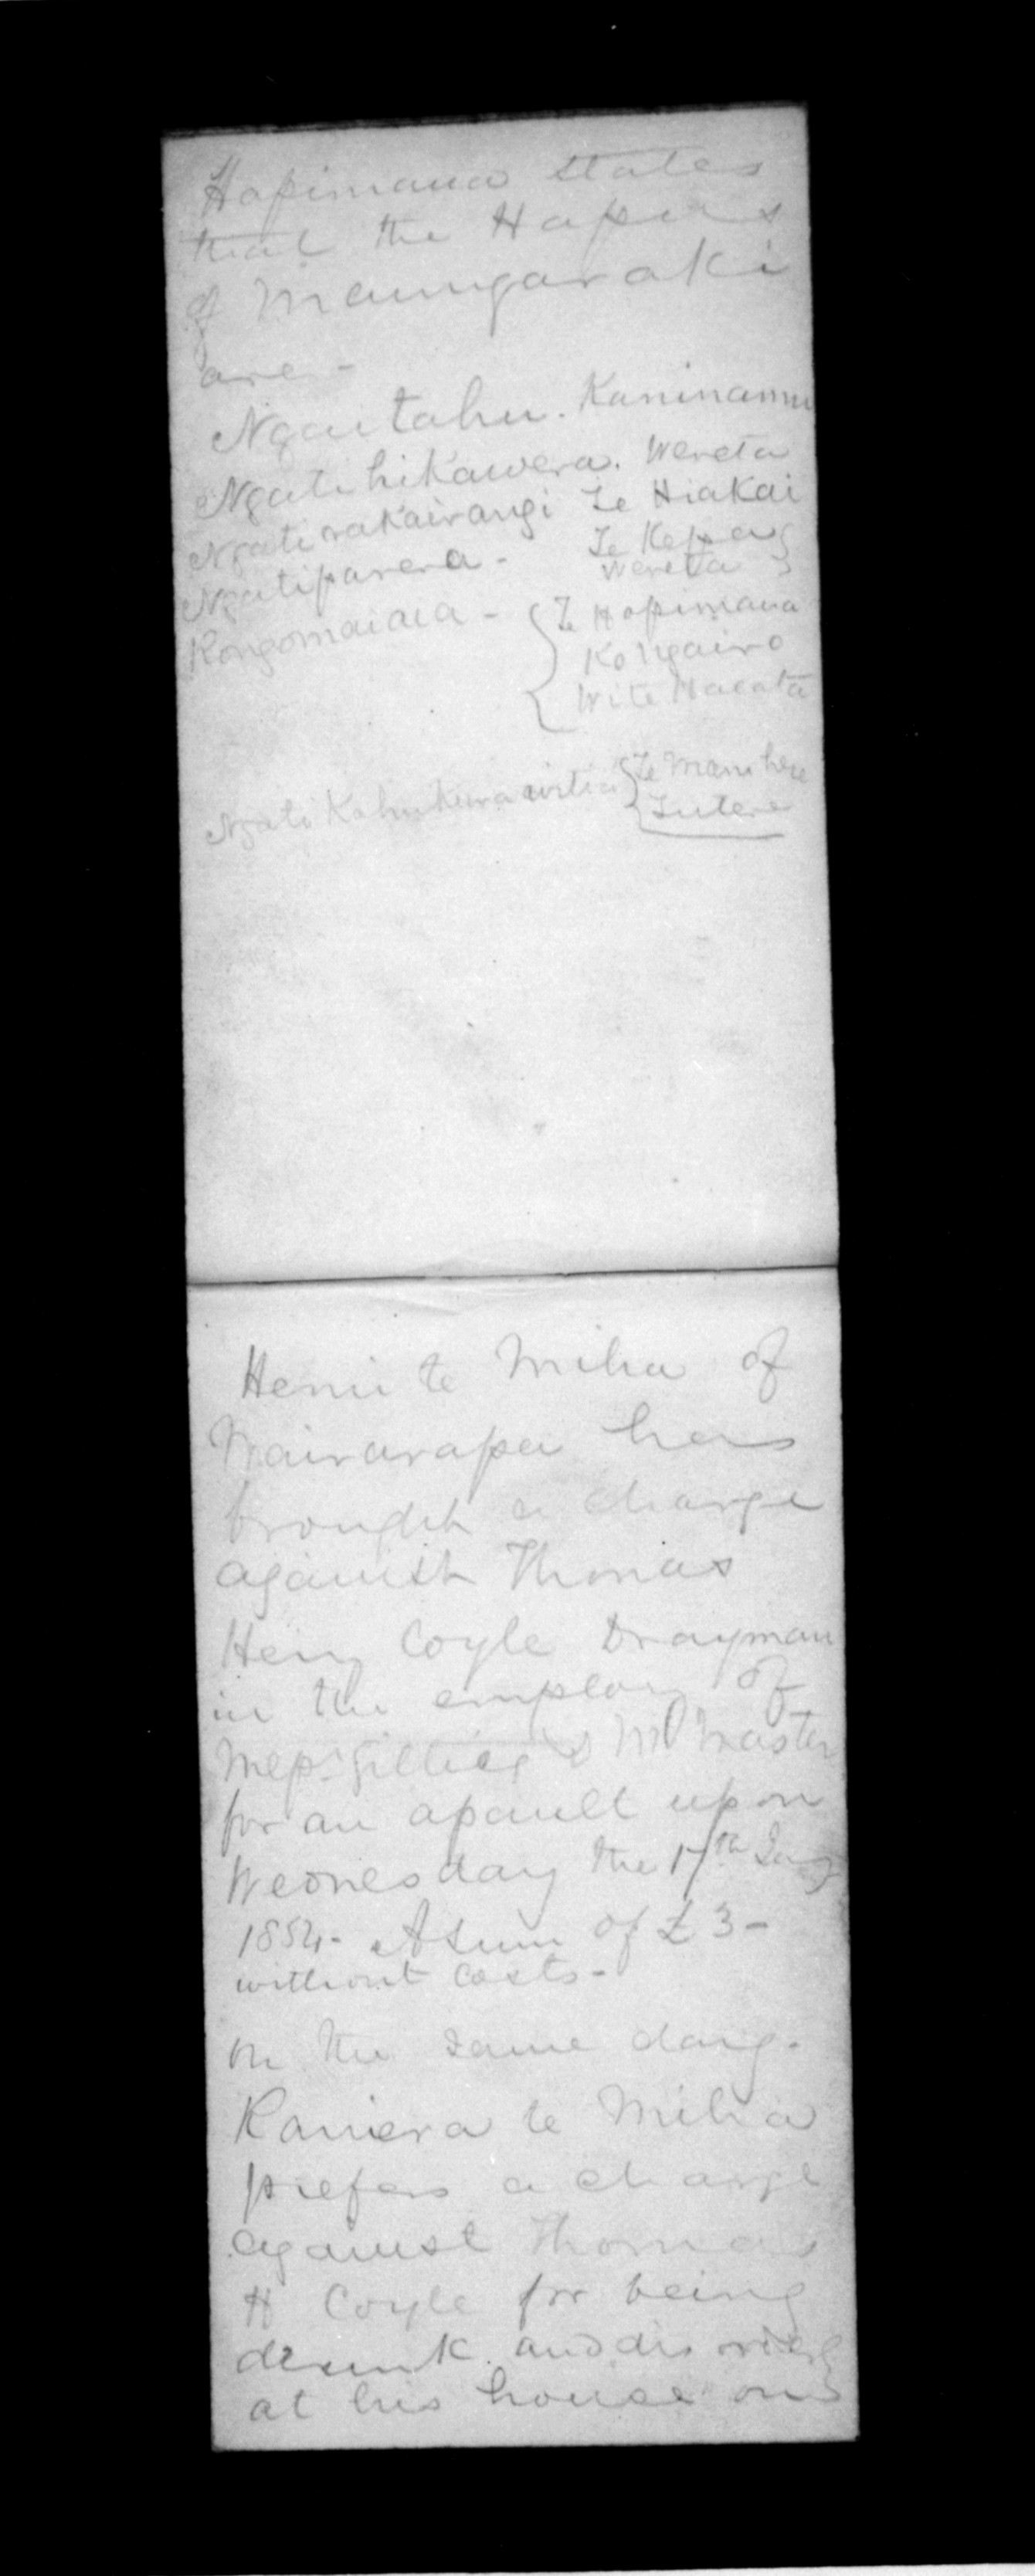 Hapimana states
that the Hapus
of Maungaraki
are -
Ngaitahu. Kaninamu
Ngatihikawera. Wereta
Ngatirakairangi Te Hiakai
Ngatiparera - Te Kepa
Wereta
Rongomaiaia - Te Hapimana
Ko Ngairo
Wi te
Ngati Kahukuraawitia Te Manihere
Tutere
Hemi te Miha of
Wairarapa has
brought a charge
against Thomas
Heny Coyle Drayman
in the employ of
Messrs Gillies & McMaster
for an assault upon
Wednesday the 17th Jany
1854. A sum of £3 -
without costs -
On the same day.
Raniera te Miha
prefers a charge
against Thomas
H Coyle for being
drunk and disorderly
at his house on